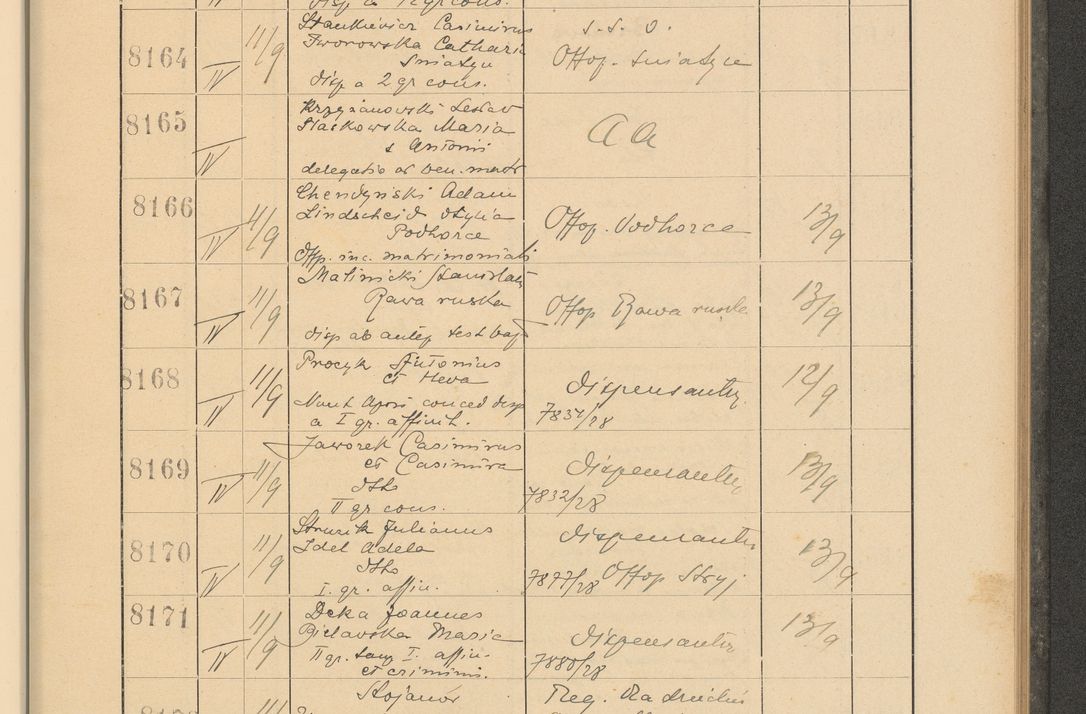 8164 IV 11/9 Stankiewicz Casimirus
Jworowska Catharin
Sniatyn
disp a 2 gr cons.
s. s. O.
Offop. Sniatyn
8165 IV Krzyżanowski Lesław
Maria
s Antonii
delegatio ad ben. matr
a a
8166 IV 11/9 Chendyński Adam
Lindscheid Otylia
Podhorce
Offp. inc. matrimoniali
Offop. Podhorce 13/9
8167 IV 11/9 Malinicki Stanisław
Rawa ruska
disp ab antep test
Offop Rawa ruska 13/9
8168 IV 11/9 Procyk Antonius
et Heva
Nunt Apos conced desp
a I gr. affinit.
dispensantur
7834/28 12/9
8169 IV 11/9 Jaworek Casimirus
et Casimira
Otto
II gr cons.
dispensantur
7832/28 13/9
8170 IV 11/9 Struzik Julianus
Idel Adela
Otto
I. gr. affin.
dispensantur
7877/28 Offop Stryj 13/9
8171 IV 11/9 Deka Joannes
Bielawska Maria
II gr. tang I. affin.
et criminis.
dispensantur
7880/28 13/9
Stojanów
Reg.